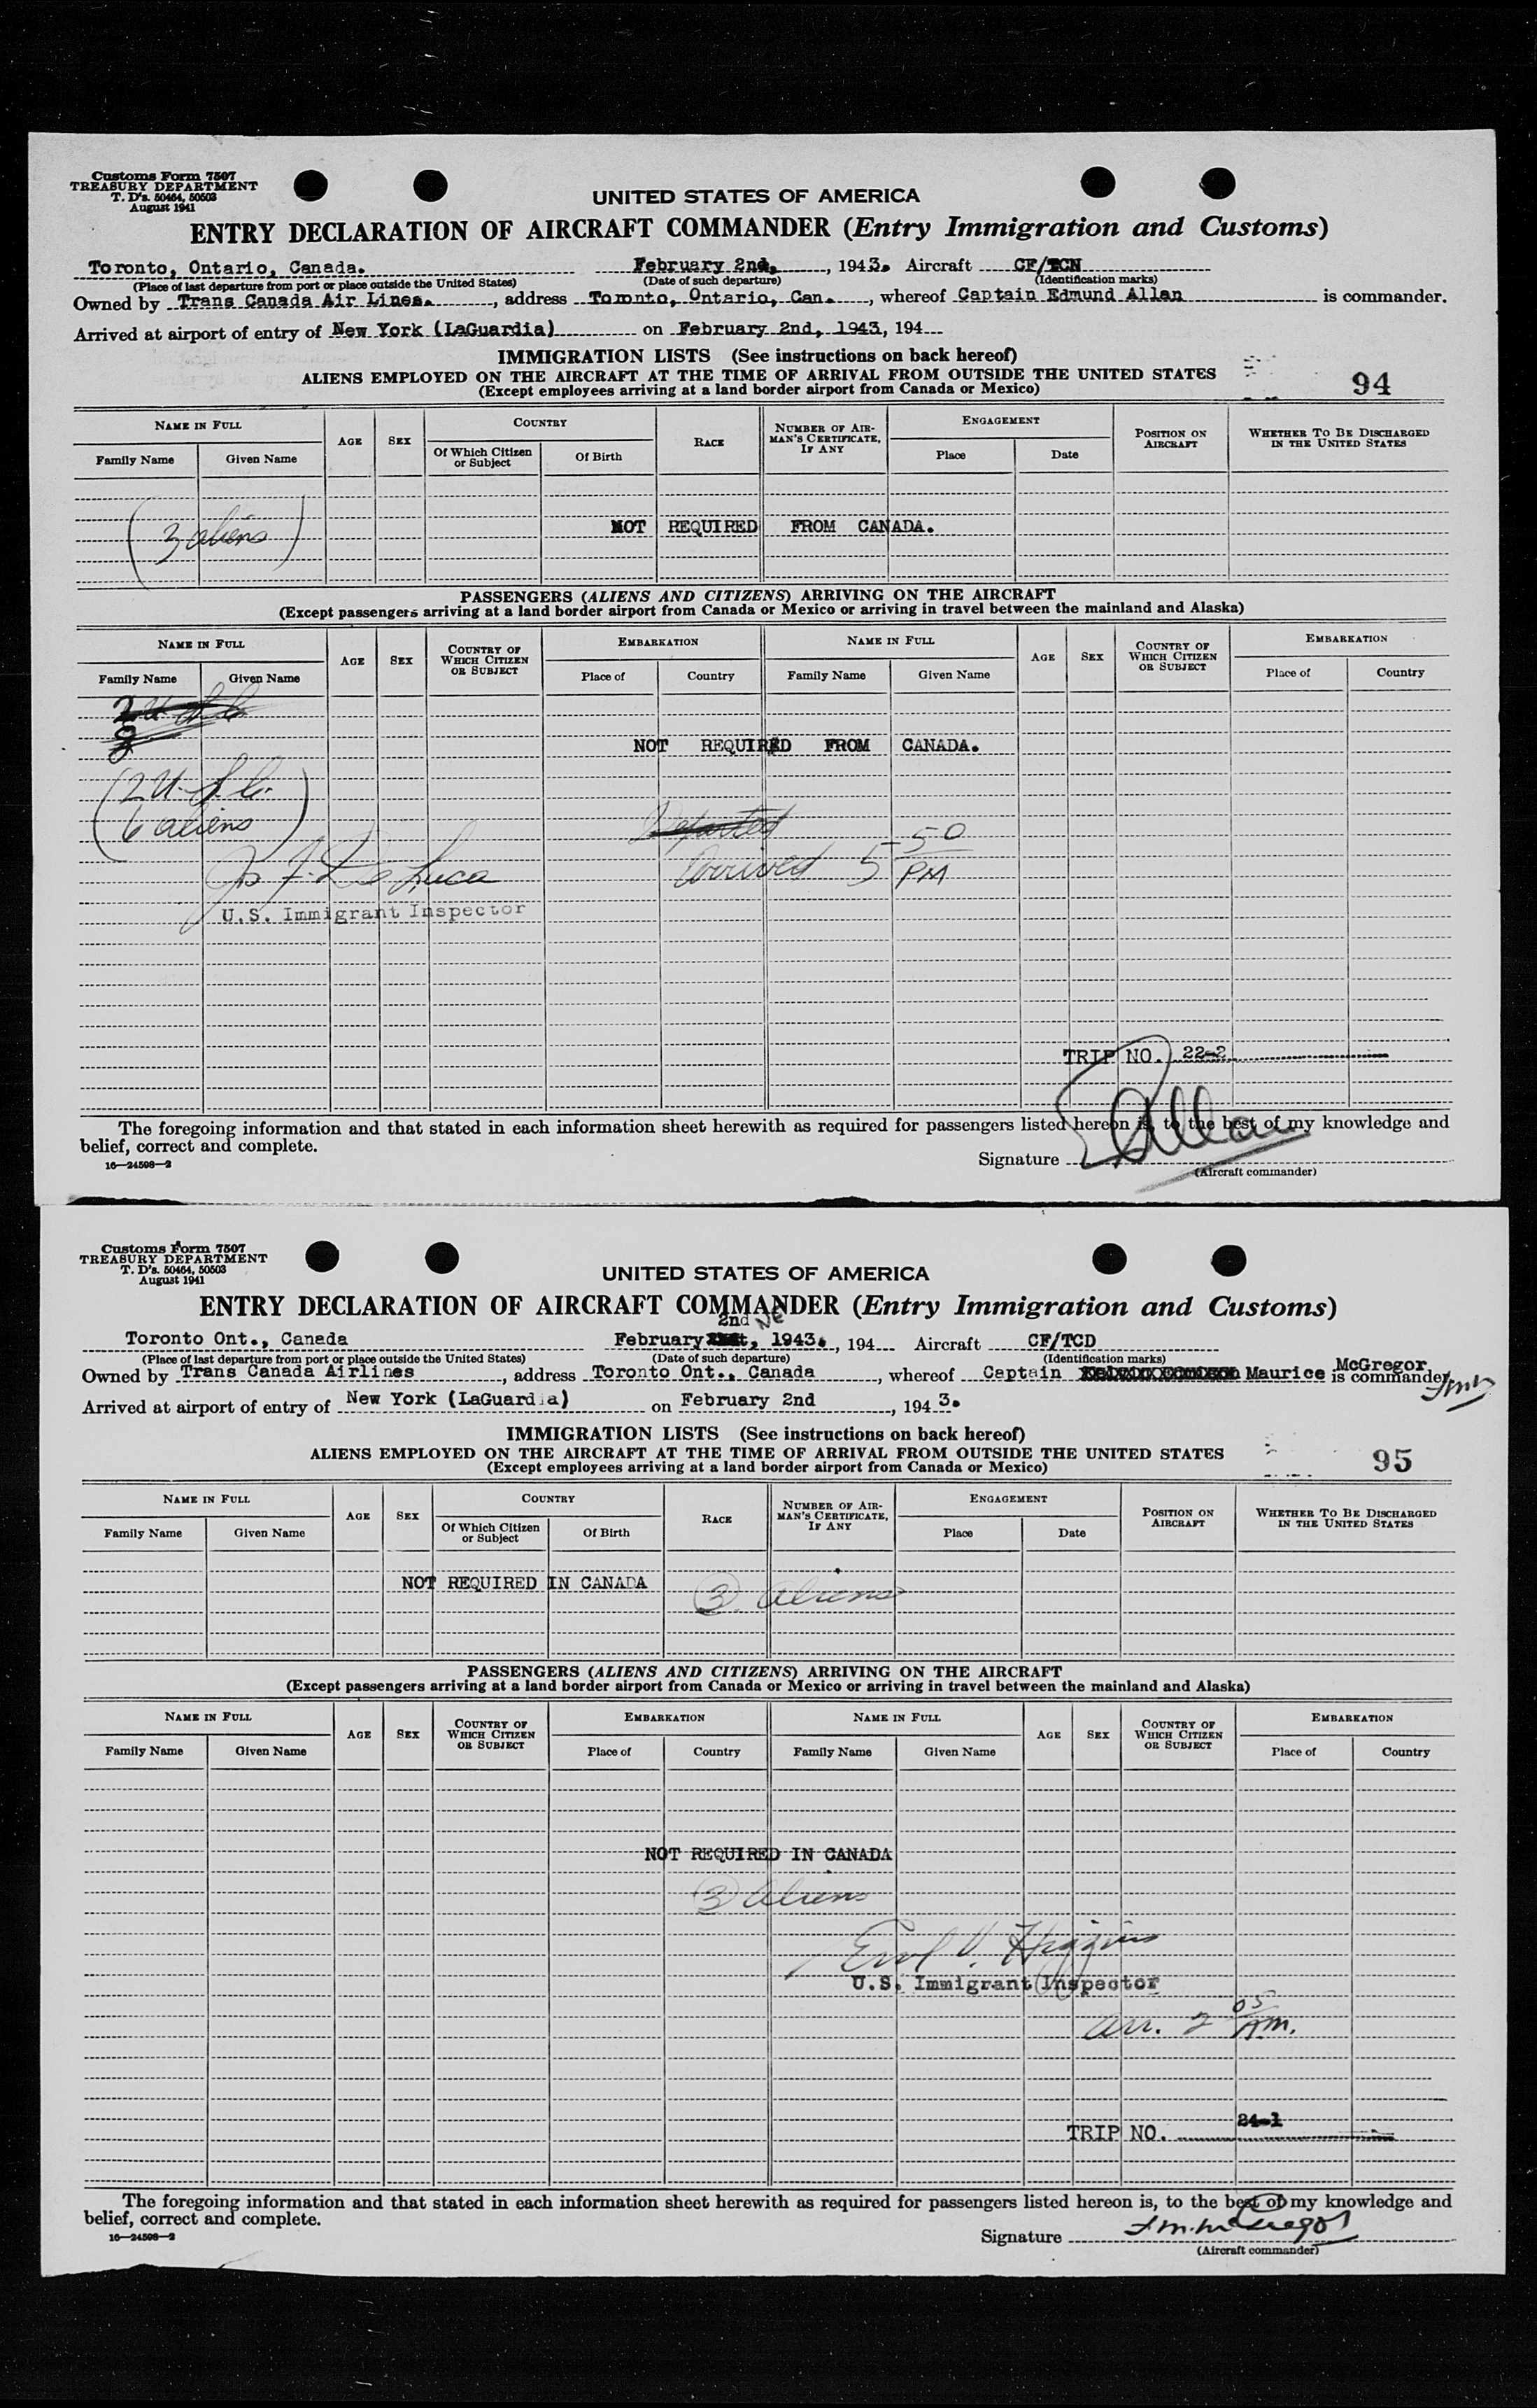 Customs Form 7507
TREASURY DEPARTMENT
T. D's. 50464, 50503
August 1941
UNITED STATES OF AMERICA
ENTRY DECLARATION OF AIRCRAFT COMMANDER (Entry Immigration and Customs)
Toronto, Ontario, Canada. February 2nd, , 1943. Aircraft CF/TCN
(Place of last departure from port or place outside the United States) (Date of such departure) (Identification marks)
Owned by Trans Canada Air Lines. , address Toronto, Ontario, Can. , whereof Captain Edmund Allan is commander.
Arrived at airport of entry of New York (LaGuardia) on February 2nd, 1943, 194
IMMIGRATION LISTS (See instructions on back hereof)
ALIENS EMPLOYED ON THE AIRCRAFT AT THE TIME OF ARRIVAL FROM OUTSIDE THE UNITED STATES
(Except employees arriving at a land border airport from Canada or Mexico)
94
NAME IN FULL AGE SEX COUNTRY RACE NUMBER OF AIRMAN'S CERTIFICATE, IF ANY ENGAGEMENT POSITION ON AIRCRAFT WHETHER TO BE DISCHARGED IN THE UNITED STATES
Family Name Given Name Of Which Citizen or Subject Of Birth Place Date
NOT REQUIRED FROM CANADA.
(3 aliens)
PASSENGERS (ALIENS AND CITIZENS) ARRIVING ON THE AIRCRAFT
(Except passengers arriving at a land border airport from Canada or Mexico or arriving in travel between the mainland and Alaska)
NAME IN FULL AGE SEX COUNTRY OF WHICH CITIZEN OR SUBJECT EMBARKATION NAME IN FULL AGE SEX COUNTRY OF WHICH CITIZEN OR SUBJECT EMBARKATION
Family Name Given Name Place of Country Family Name Given Name Place of Country
NOT REQUIRED FROM CANADA.
(2 U.S.C.
6 aliens)
Departed
Arrived 5 50 PM
J. De Luca
U.S. Immigrant Inspector
TRIP NO. 22-2
The foregoing information and that stated in each information sheet herewith as required for passengers listed hereon is, to the best of my knowledge and
belief, correct and complete.
16—24598—2
Signature Allan
(Aircraft commander)
Customs Form 7507
TREASURY DEPARTMENT
T. D's. 50464, 50503
August 1941
UNITED STATES OF AMERICA
ENTRY DECLARATION OF AIRCRAFT COMMANDER (Entry Immigration and Customs)
2nd
Toronto Ont., Canada February , 1943. , 194 Aircraft CF/TCD
(Place of last departure from port or place outside the United States) (Date of such departure) (Identification marks)
Owned by Trans Canada Airlines , address Toronto Ont., Canada , whereof Captain Maurice McGregor is commander.
Arrived at airport of entry of New York (LaGuardia) on February 2nd , 194 3.
IMMIGRATION LISTS (See instructions on back hereof)
ALIENS EMPLOYED ON THE AIRCRAFT AT THE TIME OF ARRIVAL FROM OUTSIDE THE UNITED STATES
(Except employees arriving at a land border airport from Canada or Mexico)
95
NAME IN FULL AGE SEX COUNTRY RACE NUMBER OF AIRMAN'S CERTIFICATE, IF ANY ENGAGEMENT POSITION ON AIRCRAFT WHETHER TO BE DISCHARGED IN THE UNITED STATES
Family Name Given Name Of Which Citizen or Subject Of Birth Place Date
NOT REQUIRED IN CANADA
3 Aliens
PASSENGERS (ALIENS AND CITIZENS) ARRIVING ON THE AIRCRAFT
(Except passengers arriving at a land border airport from Canada or Mexico or arriving in travel between the mainland and Alaska)
NAME IN FULL AGE SEX COUNTRY OF WHICH CITIZEN OR SUBJECT EMBARKATION NAME IN FULL AGE SEX COUNTRY OF WHICH CITIZEN OR SUBJECT EMBARKATION
Family Name Given Name Place of Country Family Name Given Name Place of Country
NOT REQUIRED IN CANADA
3 Aliens
V. Higgins
U.S. Immigrant Inspector
arr. 2 05 A.M.
TRIP NO. 24-1
The foregoing information and that stated in each information sheet herewith as required for passengers listed hereon is, to the best of my knowledge and
belief, correct and complete.
16—24598—2
Signature McGregor
(Aircraft commander)